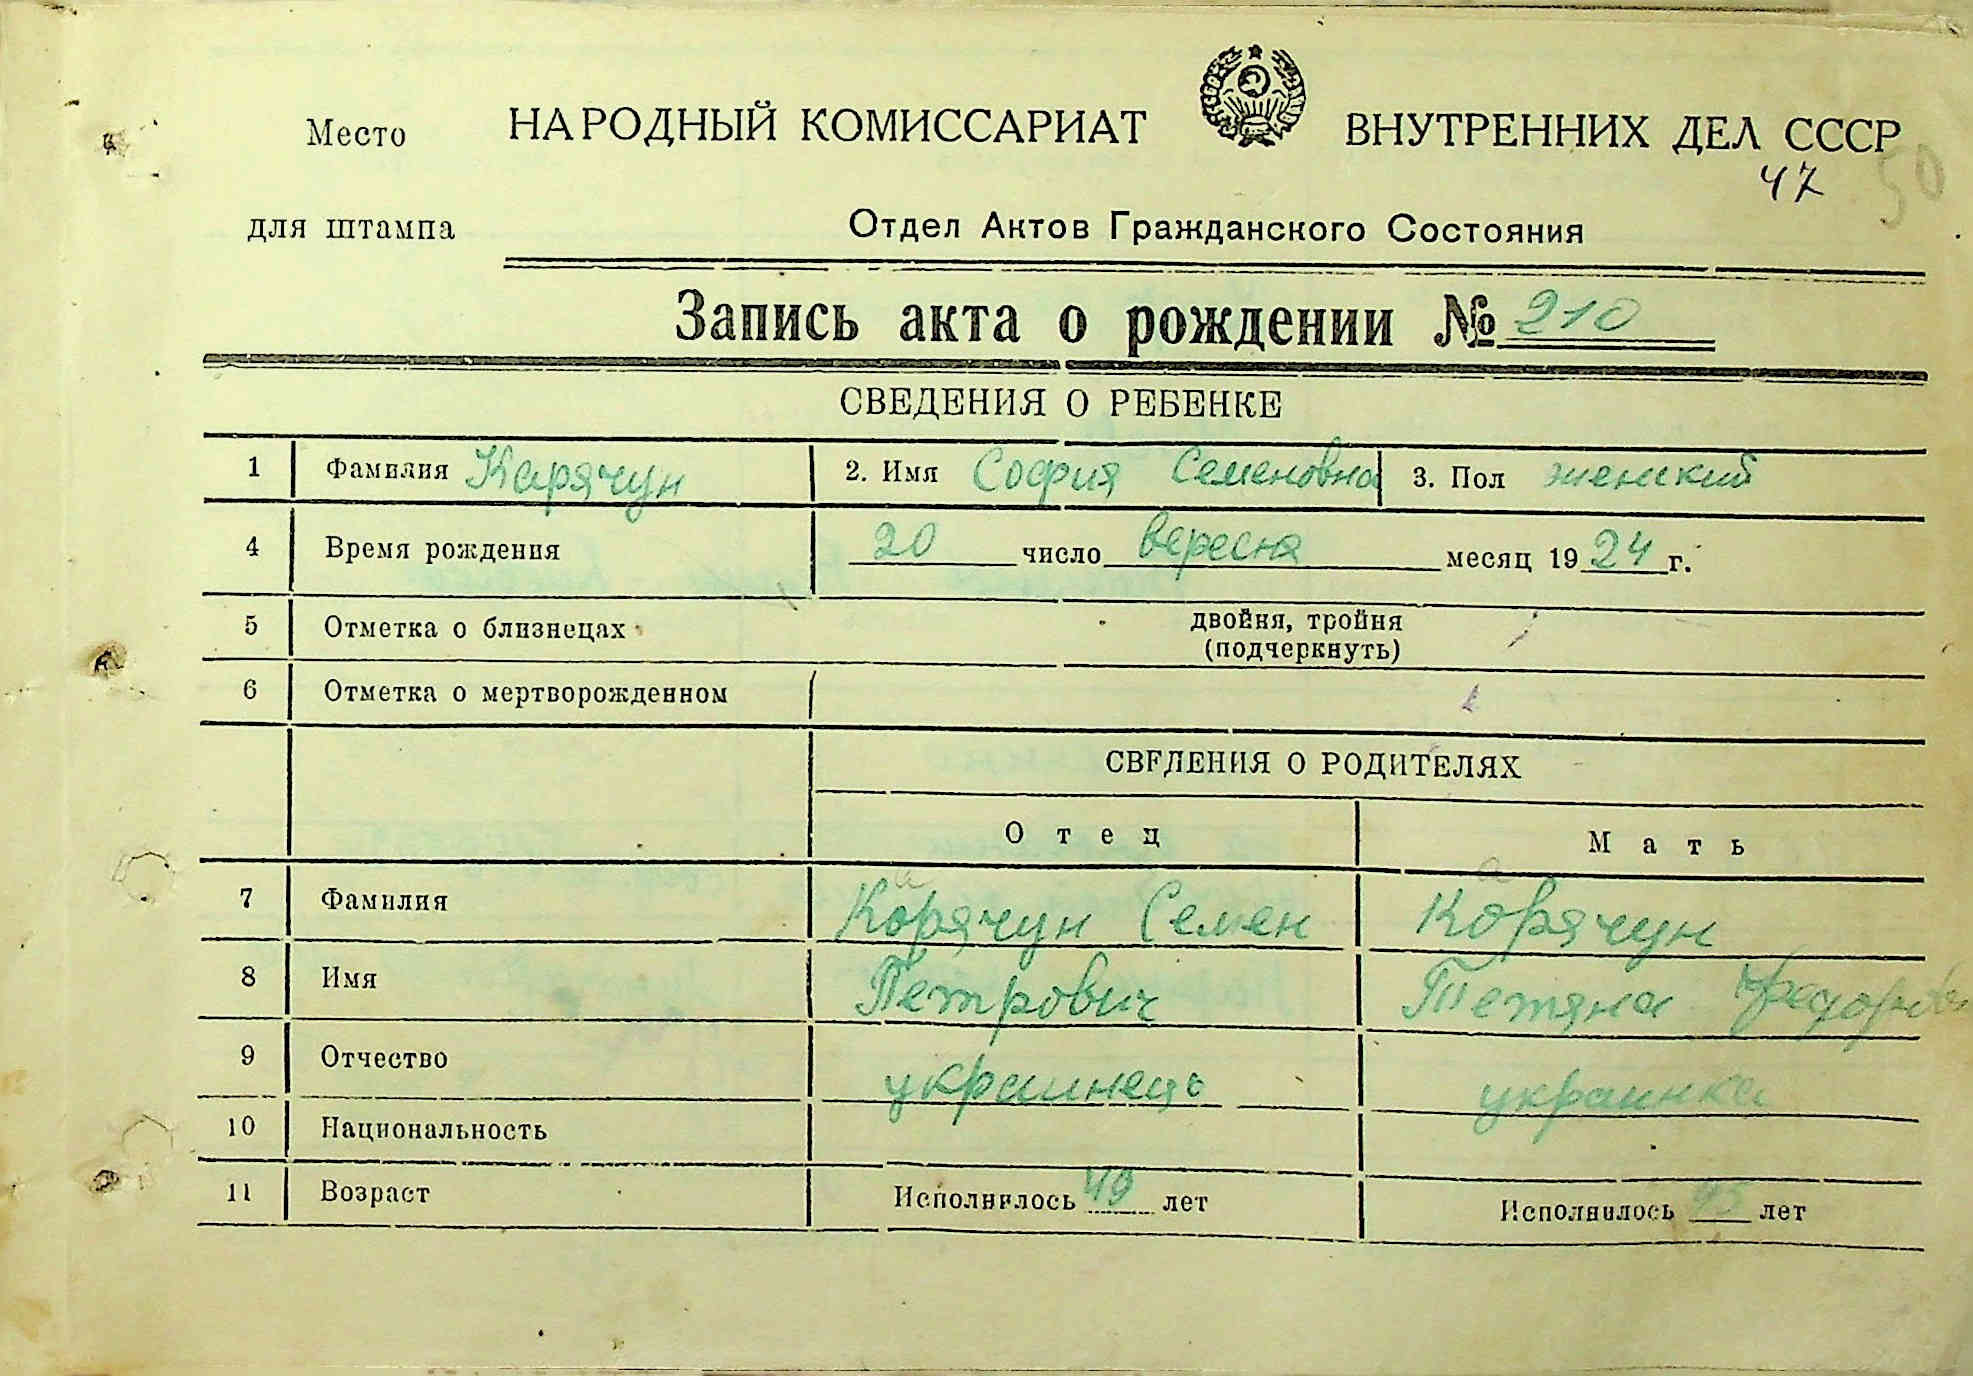 Место НАРОДНЫЙ КОМИССАРИАТ ВНУТРЕННИХ ДЕЛ СССР
47 50
для штампа Отдел Актов Гражданского Состояния
Запись акта о рождении № 210
СВЕДЕНИЯ О РЕБЕНКЕ
1 Фамилия Карячун 2. Имя София Семеновна 3. Пол женский
4 Время рождения 20 число вересня месяц 1924 г.
5 Отметка о близнецах двойня, тройня
(подчеркнуть)
6 Отметка о мертворожденном
СВЕДЕНИЯ О РОДИТЕЛЯХ
Отец Мать
а а
7 Фамилия Корячун Семен Корячун
8 Имя Петрович Тетяна
9 Отчество украинець украинка
10 Национальность
11 Возраст Исполнилось 49 лет Исполнилось 45 лет